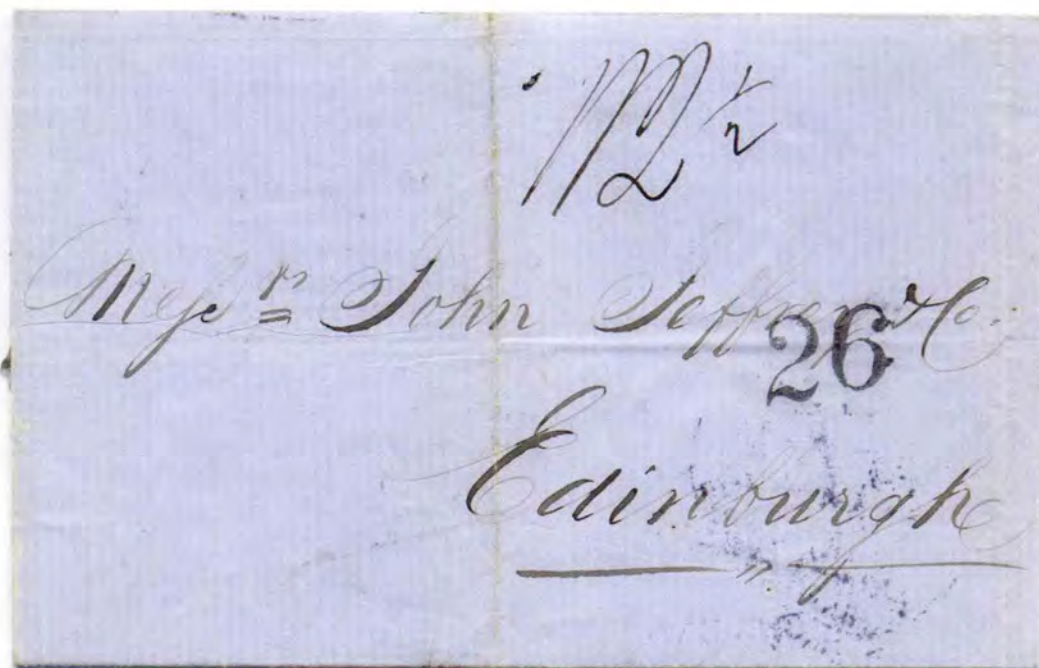 1/2 ½
Messrs John Jeffrey & Co.
26
Edinburgh